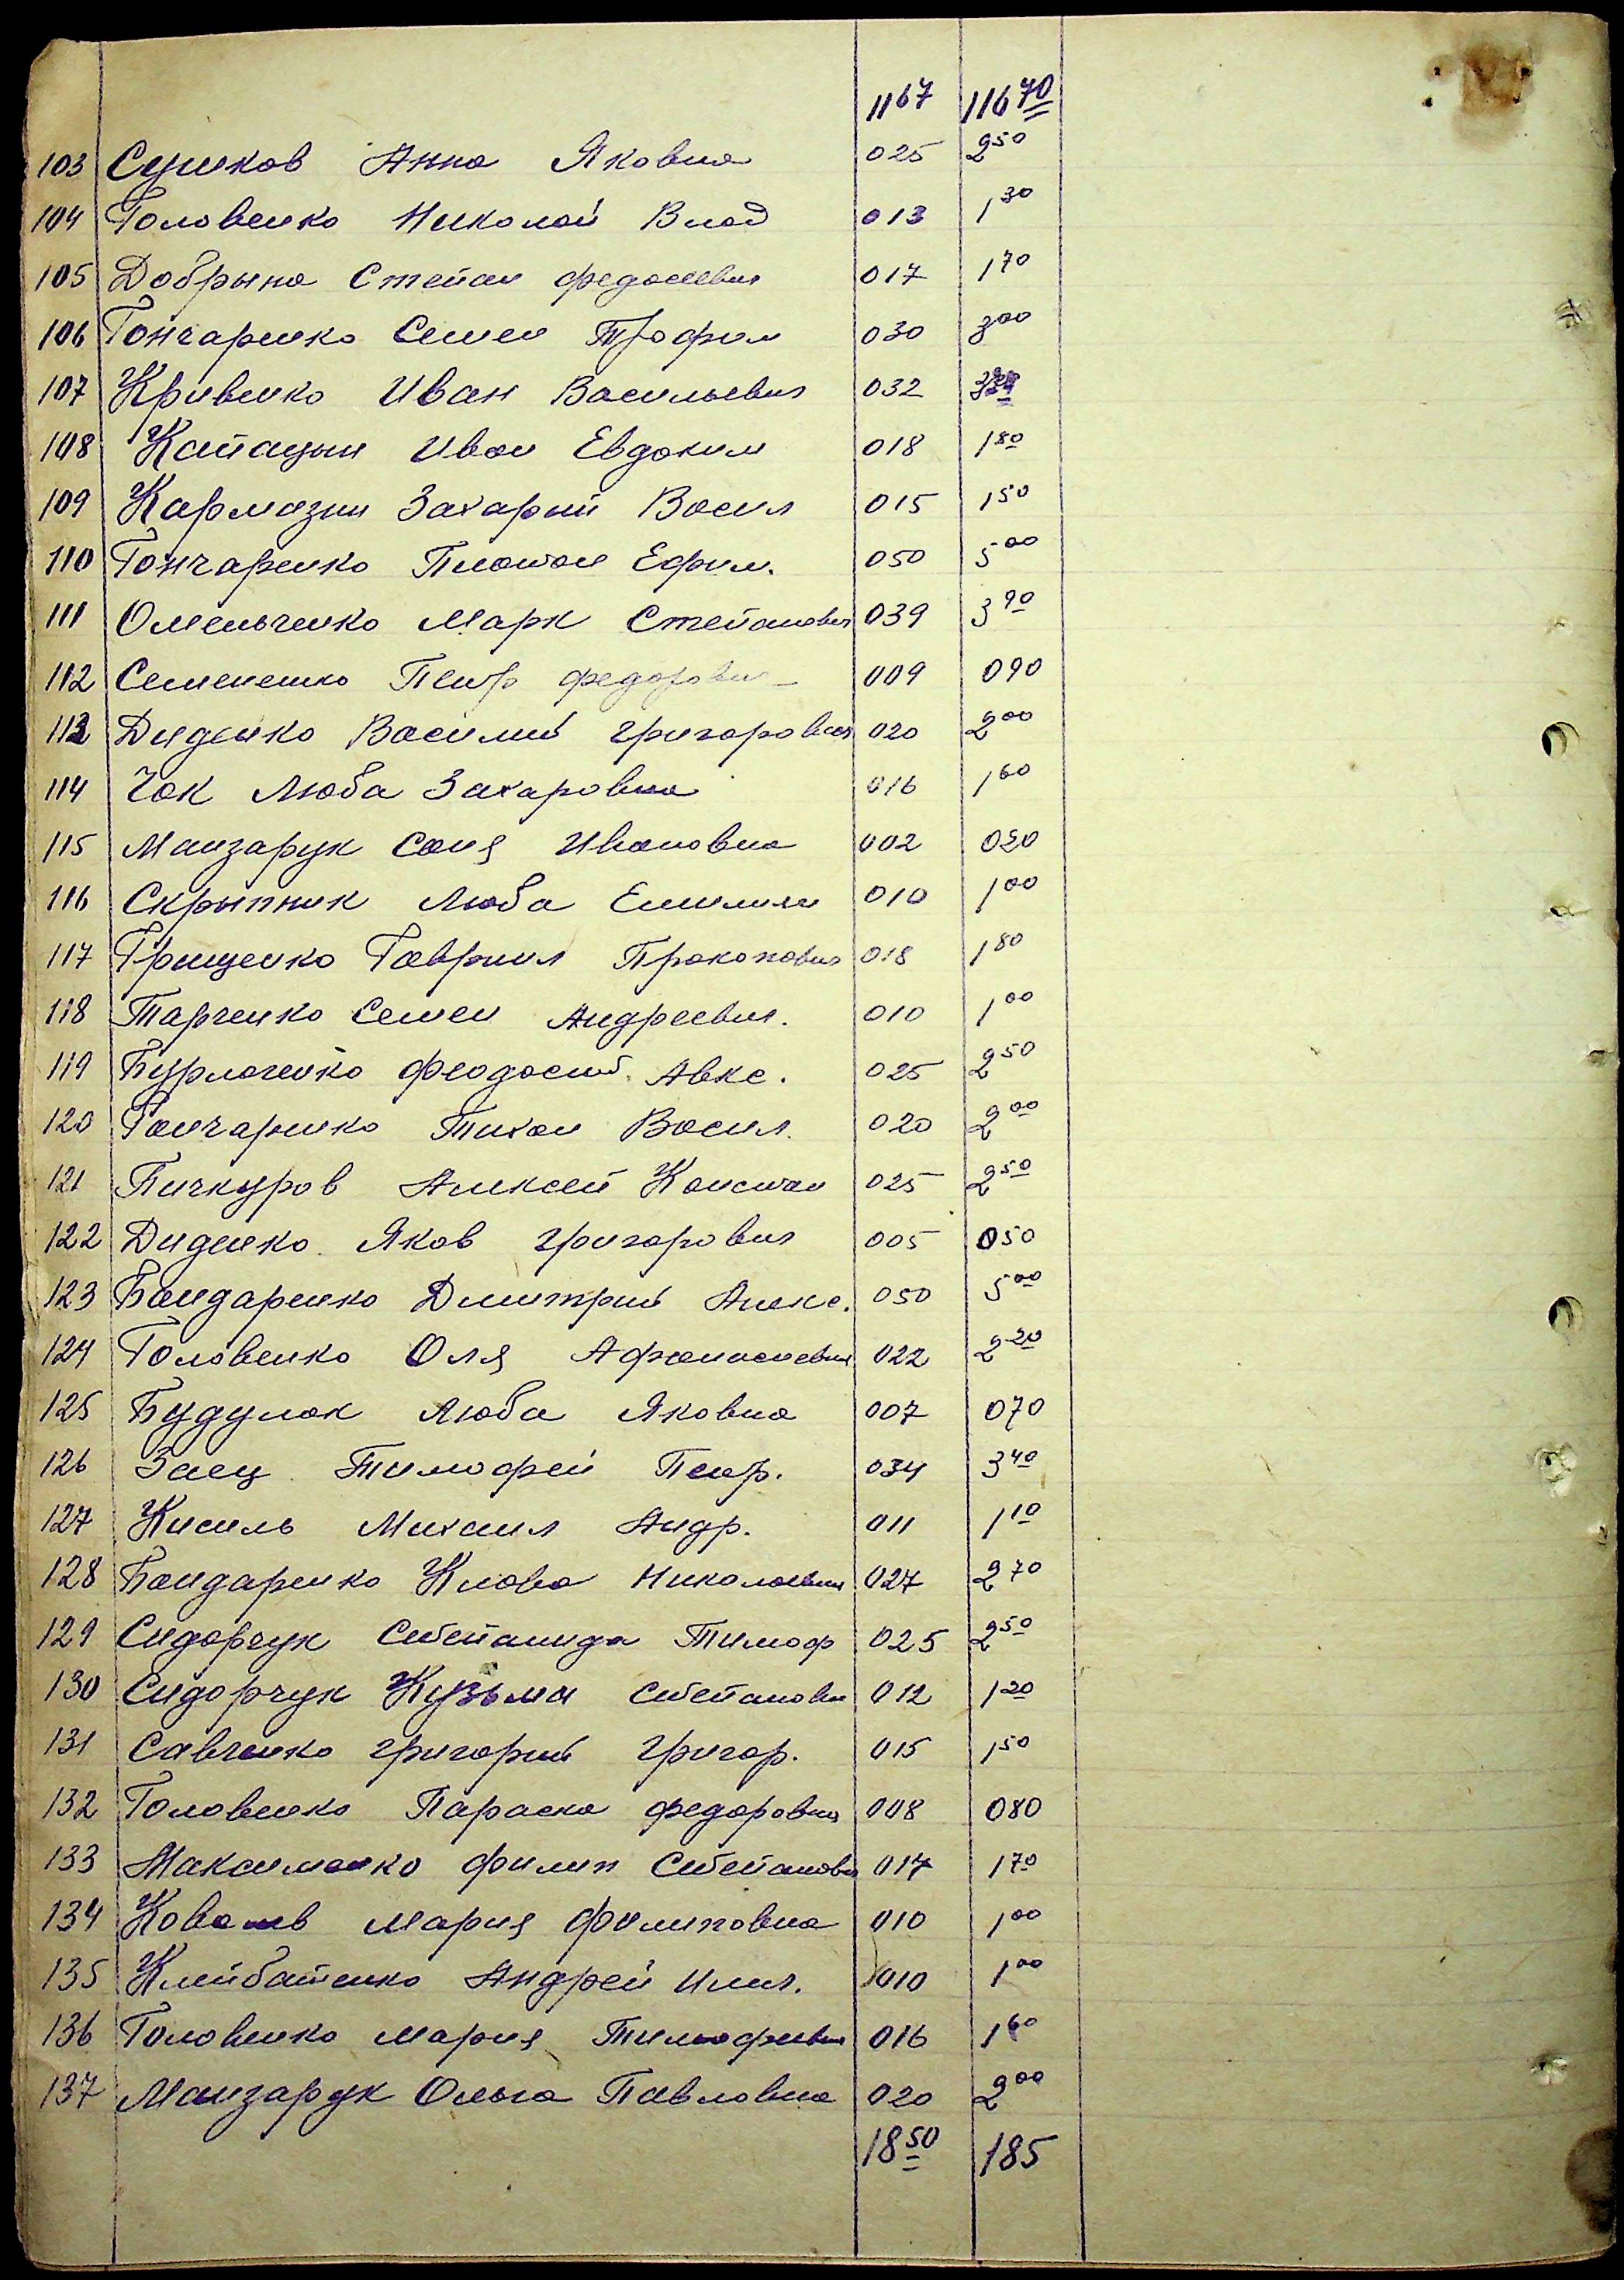 11 67 116 70
103 Сушков Анна Яковна 025 2 50
104 Головенко Николай Влад 013 1 30
105 Добрына Степан Федосеевич 017 1 70
106 Гончаренко Семен Трофим 030 3 00
107 Кривенко Иван Васильевич 032
108 Капацын Иван Евдоким 018 1 80
109 Кармазин Захарий Васил 015 1 50
110 Гончаренко Платон Ефим. 050 5 00
111 Омельченко Марк Степанович 039 3 90
112 Семененко Петр Федорович 009 0 90
113 Диденко Василий Григорович 020 2 00
114 Чок Люба Захаровна 016 1 60
115 Манзарук Соня Ивановна 002 0 20
116 Скрыпник Люба Емильян 010 1 00
117 Грищенко Гавриил Прокопович 018 1 80
118 Тарченко Семен Андреевич. 010 1 00
119 Бурлаченко Феодосий Авкс. 025 2 50
120 Гончаренко Тихон Васил. 020 2 00
121 Пичкуров Алексей Констан 025 2 50
122 Диденко Яков Григорович 005 0 50
123 Бондаренко Дмитрий Алекс. 050 5 00
124 Головенко Оля Афонасиевна 022 2 20
125 Будулак Люба Яковна 007 0 70
126 Заец Тимофей Петр. 034 3 40
127 Кисиль Михаил Андр. 011 1 10
128 Бондаренко Клава Николаевна 027 2 70
129 Сидорчук Степанида Тимоф 025 2 50
130 Сидорчук Кузьма Степанович 012 1 20
131 Савченко Григорий Григор. 015 1 50
132 Головенко Параска Федоровна 008 0 80
133 Максименко Филип Степанович 017 1 70
134 Коваль Мария Филиповна 010 1 00
135 Клейбатенко Андрей Илич. 010 1 00
136 Головенко Мария Тимофиевна 016 1 60
137 Манзарук Ольга Павловна 020 2 00
18 50 185